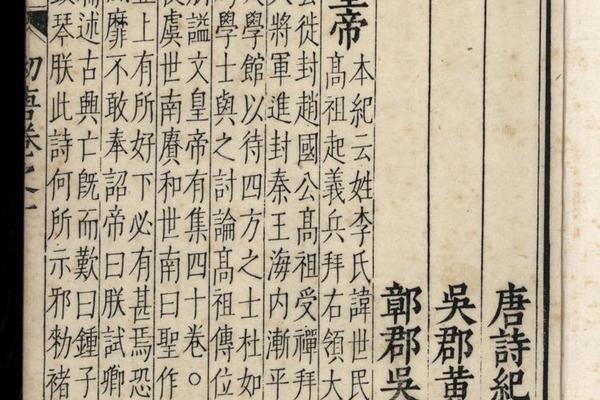 唐詩紀
吳郡黄
鄣郡吳
皇帝
本紀云姓李氏諱世民
髙祖起義兵拜右領大
徙封趙國公髙祖受禪拜
將軍進封秦王海内漸平
學館以待四方之士杜如
學士與之討論髙祖傳位
謚文皇帝有集四十卷。
虞世南賡和世南曰聖作
上有所好下必有甚焉恐
靡不敢奉詔帝曰朕試卿
述古興亡旣而歎曰鍾子
琴朕此詩何所示邪勑褚
初唐卷之一